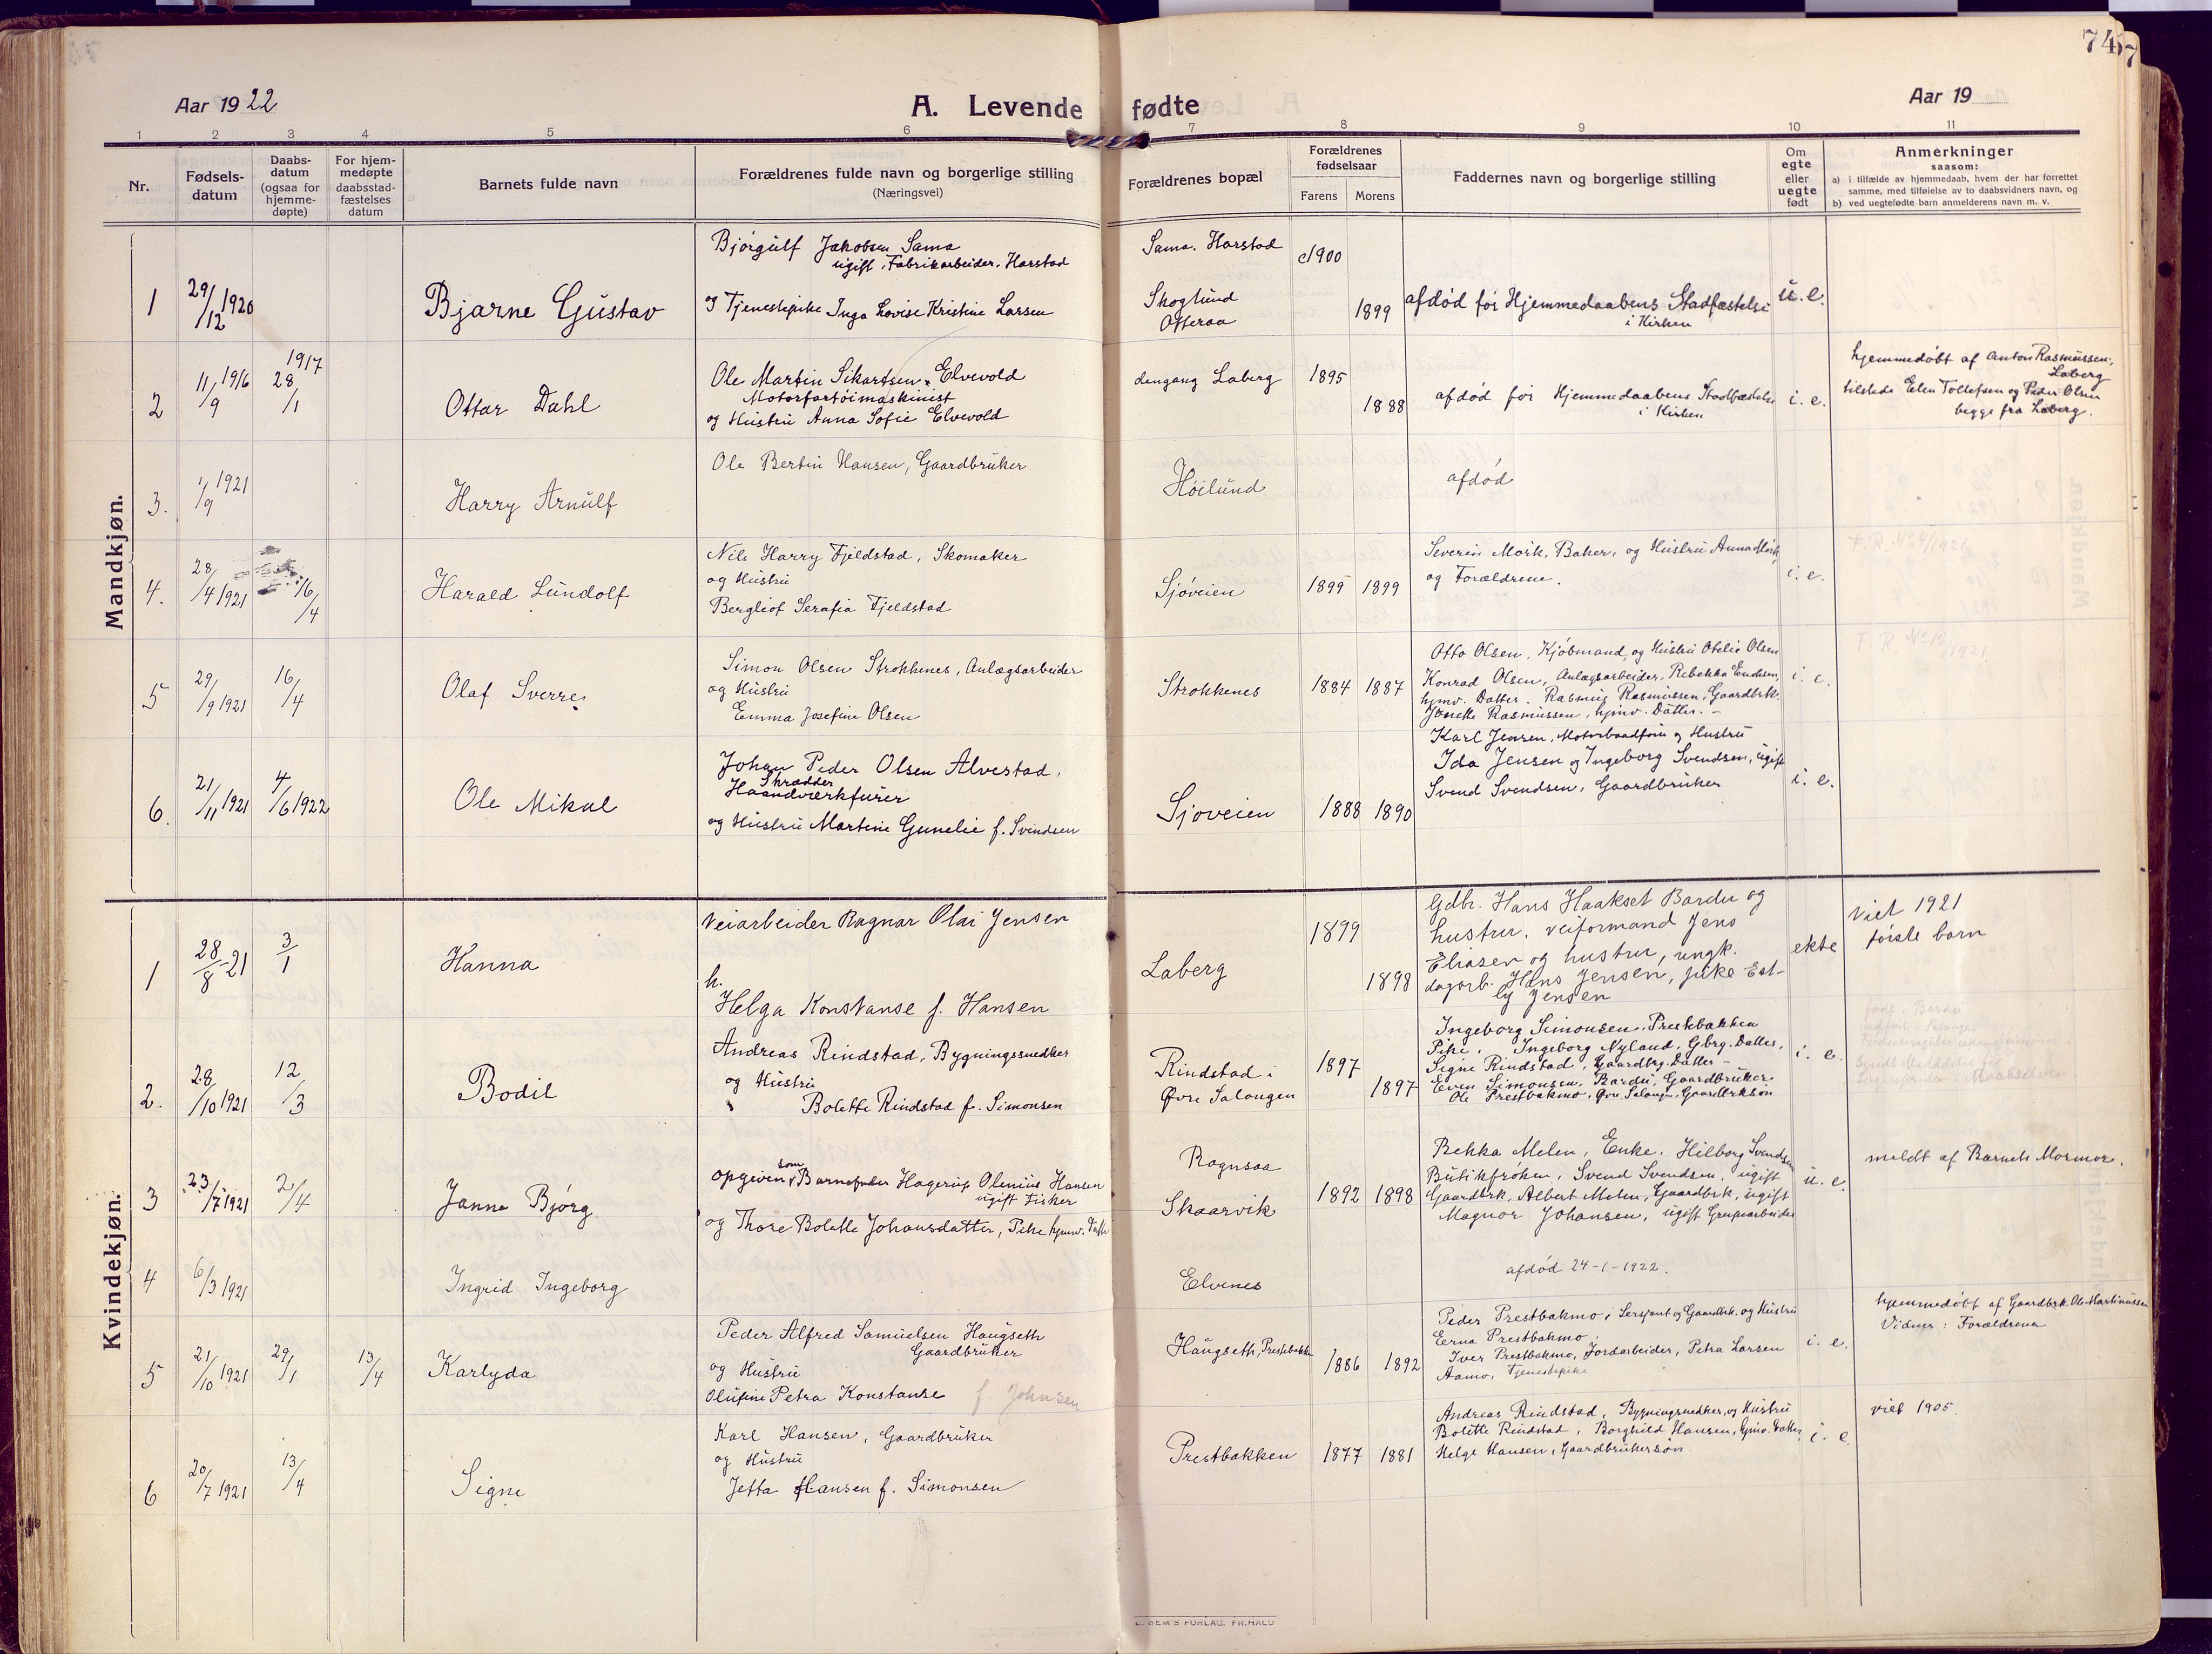 74
7
Aar 1922
A. Levende fødte
Aar 19
1 2 3 4 5 6 7 8 9 10 11
Nr.
Fødsels-
datum
Daabs-
datum
(ogsaa for
hjemme-
døpte)
For hjem-
medøpte
daabsstad-
fæstelses
datum
Barnets fulde navn
Forældrenes fulde navn og borgerlige stilling
(Næringsvei)
Forældrenes bopæl
Forældrenes
fødselsaar
Farens Morens
Faddernes navn og borgerlige stilling
Om
egte
eller
uegte
født
Anmerkninger
saasom:
a) i tilfælde av hjemmedaab, hvem der har forrettet
samme, med tilføielse av to daabsvidners navn, og
b) ved uegtefødte barn anmelderens navn m. v.
Mandkjøn.
1
29/12 1920
Bjarne Gustav
Bjørgulf Jakobsen Sama
ugift, Fabrikarbeider, Harstad
og Tjenestepike Inga Lovise Kristine Larsen
Sama. Harstad
Skoglund
Otteraa
1900
1899
afdød før Hjemmedaabens Stadfæstelse
i Kirken
u. e.
2
11/9 1916
1917
28/1
Ottar Dahl
Ole Martin Sikartsen Elvevold
Motorfartøimaskinist
og Hustru Anna Sofie Elvevold
dengang Laberg
1895
1888
afdød før Hjemmedaabens Stadfæstelse
i Kirken
i. e.
hjemmedøbt af Anton Rasmussen,
Laberg
tilstede Elen Tollefsen og Peder Olsen
begge fra Laberg.
3.
1/9 1921
Harry Arnulf
Ole Bertin Hansen, Gaardbruker
Høilund
afdød
4.
28/4 1921
16/4
Harald Lundolf
Nils Harry Fjeldstad, Skomaker
og Hustru
Bergliot Serafia Fjeldstad
Sjøveien
1895 1899
Severin Mørk, Baker, og Hustru Anna Mørk,
og Forældrene.
i. e.
F. R. No 4/1921
5
29/9 1921
16/4
Olaf Sverre
Simon Olsen Strokkenes, Anlægsarbeider
og Hustru
Emma Josefine Olsen
Strokkenes
1884 1887
Otto Olsen, Kjøbmand, og Hustru Otelie Olsen
Konrad Olsen, Anlægsarbeider, Rebekka Enoksen,
hjmv. Datter. Rasmus Rasmussen, Gaardbrk.
Jonette Rasmussen, hjmv. Datter.
i. e.
F. R. No 15/1921
6.
21/11 1921
4/6 1922
Ole Mikal
Johan Peder Olsen Alvestad,
Skrædder
Haandværkfurer
og Hustru Martine Gunelie f. Svendsen
Sjøveien
1888 1890
Karl Jensen, Motorbaadfører og Hustru
Ida Jensen og Ingeborg Svendsen, ugift
Svend Svendsen, Gaardbruker
i. e.
Kvindekjøn.
1
28/8-21
3/1
Hanna
Veiarbeider Ragnar Olai Jensen
h.
Helga Konstanse f. Hansen
Laberg
1899
1898
Gdbr. Hans Haakset Bardu og
hustru, veiformand Jens
Eliasen og hustru, ungk.
dagarb. Hans Jensen, pike Est-
ly Jensen
ekte
Viet 1921
første barn
2.
28/10 1921
12/3
Bodil
Andreas Rindstad, Bygningssnedker
og Hustru
Bolette Rindstad f. Simonsen
Rindstad i
Øvre Salangen
1897
1897
Ingeborg Simonsen, Prestbakken
Pike, Ingeborg Nyland, Gbrg. Datter,
Signe Rindstad, Gaardbrg. Datter
Even Simonsen, Bardu, Gaardbruker
Ole Prestbakmo, Øvre Salangen, Gaardbrksøn
i. e.
3
23/7 1921
2/4
Janna Bjørg
opgiven som Barnefader Hagerup Olenius Hansen
ugift Fisker
og Thora Bolette Johansdatter, Pike hjmv. Datter
Ragnsaa
Skaarvik
1892 1898
Bekka Melen, Enke, Hilborg Svendsen
Butikfrøken, Svend Svendsen, ugift
Gaardbrk, Albert Melen, Gaardbrk, ugift
Magnor Johansen, ugift Grupearbeider
u. e.
meldt af Barnets Mormor.
4
6/3 1921
Ingrid Ingeborg
Elvenes
afdød 24-1-1922.
5
21/10 1921
29/1
13/4
Karlyda
Peder Alfred Samuelsen Haugseth
Gaardbruker
og Hustru
Olufine Petra Konstanse f. Johnsen
Haugseth, Prestebakken
1886 1892
Peder Prestbakmo, Sersjant og Gaardbrk. og Hustru
Erna Prestbakmo,
Iver Prestbakmo, Jordarbeider, Petra Larsen
Aamo, Tjenestepike
i. e.
hjemmedøbt af Gaardbrk. Ole Martinussen
Vidner: Forældrene
6
20/7 1921
13/4
Signe
Karl Hansen, Gaardbruker
og Hustru
Jetta Hansen f. Simonsen
Prestbakken
1877 1881
Andreas Rindstad, Bygningsnedker, og Hustru
Bolette Rindstad, Borghild Hansen, hjmv. Datter,
Helge Hansen, Gaardbrukersøn
i. e.
viet 1905.